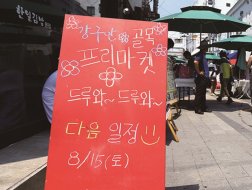 강주란 골목
프리마켓
드루와~ 드루와~
다음 일정
8/15(토)